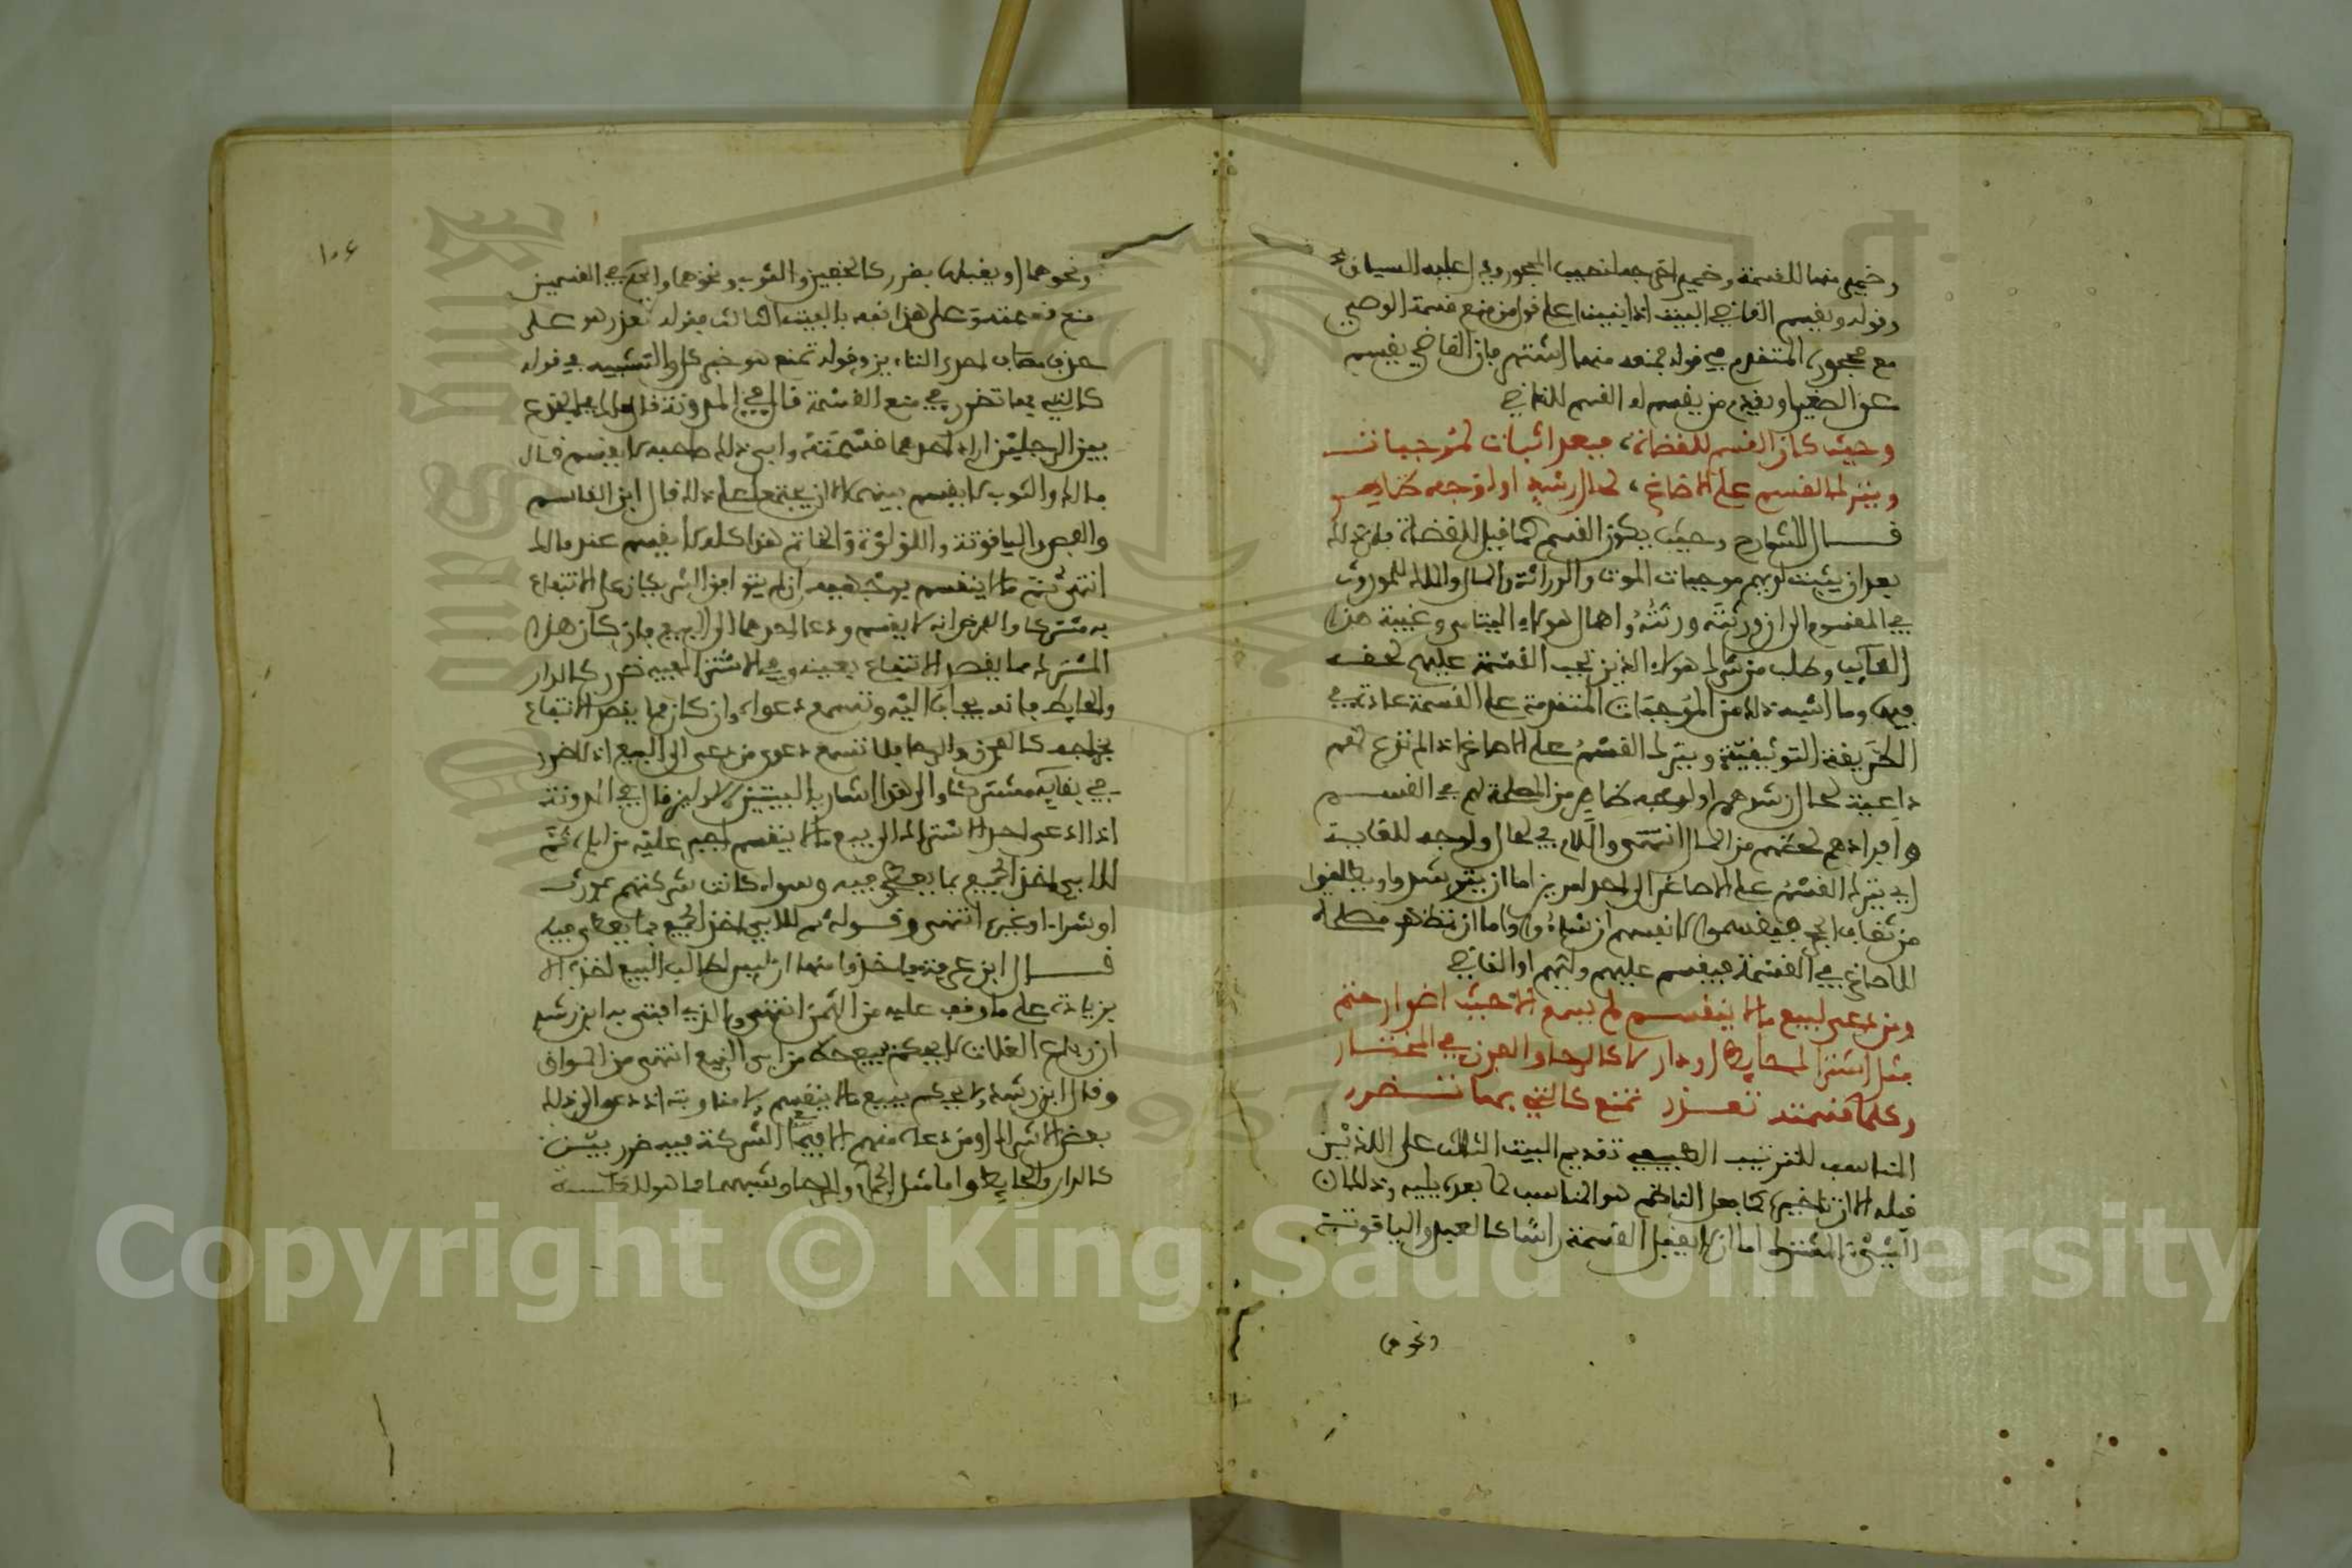 وضمير منها للقسمة وضمير اخرجه لنصيب المحجور ويدل عليه السياق
وقوله ويقسم القاضي البيت اذا بنينا على قول من منع قسمة الوصي
مع محجوره المتقدم في قوله بمنعه منها اشتهر فان القاضي يقسم
عن الصغير او يقدم من يقسم له القسم للقاضي
وحيث كان القسم للقضاة، فبعد اثبات لموجبات
ويترك القسم على الاصاغر، لحال رشد او لوجه ظاهر
قال الشارح وحيث يكون القسم كما قيل للقضاة فان ذلك
بعد ان يثبت لديهم موجبات الموت والوراثة والمال والملك للموروث
في المقسوم الى ان ورثته ورثته واهمال هؤلاء اليتامى وغيبة هذا
الغايب وطلب من شرك هؤلاء الذين تجب القسمة عليهم لحقه
فيها وما اشبه ذلك من الموجبات المتقدمة على القسمة عادة في
الطريقة التوثيقية ويترك القسم على الاصاغر اذا لم تدع لهم
داعية لحال رشدهم او لوجه ظاهر من المصلحة لهم في القسم
وافرادهم بحقهم من المال انتهى واللام في لحال ولوجه للغاية
اي يترك القسم على الاصاغر الى احد امرين اما ان يترشدوا ويطلقوا
من ثقاف الحجر فيقسموا لانفسهم ان شاءوا واما ان تظهر مصلحة
للاصاغر في القسمة فيقسم عليهم وليهم او القاضي
ومن دعى لبيع ما لا ينقسم لم يسمع الا حيث اضرار حتم
مثل اشتراك حايط او دار لا كالرحا والفرن في المختار
وكلما قسمته تعذر تمنع كالتي بها تضرر
المناسب للترتيب الطبيعي تقديم البيت الثالث على اللذين
قبله الا ان تاخيره كما فعل الناظم هو المناسب لما بعده يليه وذلك ان
الشيء المشترك اما ان لا يقبل القسمة راسا كالعبد والياقوتة
ونحو
١٠٤
ونحوهما او يقبلها بضرر كالخفين والثوب ونحوهما والحكم في القسمين
منع قسمته وعلى هذا نبه بالبيت الثالث فقوله تعذر هو على
حذف مضاف احدى التاءين وقوله تمنع هو خبر كل والتشبيه في قوله
كالتي بها تضرر في منع القسمة قال في المدونة قال مالك في الجذع
بين الرجلين اراد احدهما قسمته وابى ذلك صاحبه لا يقسم قال
مالك والثوب لا يقسم بينهما الا ان يجتمعا على ذلك قال ابن القاسم
والفص والياقوتة واللؤلؤة والخاتم هذا كله لا يقسم عند مالك
انتهى ثم ما لا ينقسم يوجه فيه ان لم يتوافق الشريكان على الانتفاع
به مشتركا والفرض انه لا يقسم ودعا احدهما الى البيع فان كان هذا
المشترك مما يقصد الانتفاع بعينه وفي الاشتراك فيه ضرر كالدار
والحايط فانه يجاب اليه وتسمع دعواه وان كان مما يقصد الانتفاع
بخراجه كالفرن والرحا فلا تسمع دعوى من دعى الى البيع اذ لا ضرر
في بقايه مشتركا والى هذا اشار بالبيتين الاولين قال في المدونة
اذا دعى احد الاشراك الى بيع ما لا ينقسم اجبر عليه من اباه ثم
للابي اخذ الجميع بما يعطى فيه وسواء كانت شركتهم بمورث
او شراء او غيره انتهى وقوله ثم للابي اخذ الجميع بما يعطى فيه
قال ابن عرفة ياخذ منها ان ليس لطالب البيع اخذه الا
بزيادة على ما وقف عليه من الثمن انتهى والذي افتى به ابن رشد
ان رباع الغلات لا يحكم ببيع حظ من ابى البيع انتهى من المواق
وقال ابن رشد ولا يحكم ببيع ما لا ينقسم ولا مقاومته اذا دعى الى ذلك
بعض الاشراك او من دعا منهم الا فيما في الشركة فيه ضرر بين
كالدار والحايط واما مثل الحمام والرحا وشبههما مما هو للغلة